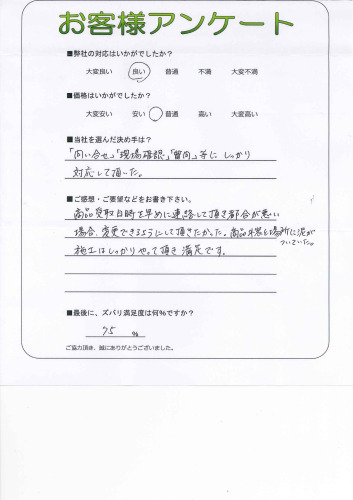 お客様アンケート
■弊社の対応はいかがでしたか?
大変良い 良い 普通 不満 大変不満
■価格はいかがでしたか?
大変安い 安い 普通 高い 大変高い
■当社を選んだ決め手は?
「問い合せ」「現場確認」「質問」等に しっかり
対応して頂いた。
■ご感想・ご要望などをお書き下さい。
商品受取日時を早めに連絡して頂き都合が悪い
場合、変更できるようにして頂きたかった。商品 場所に泥が
ついていた。
施工はしっかりやって頂き満足です。
■最後に、ズバリ満足度は何%ですか?
75 %
ご協力頂き、誠にありがとうございました。